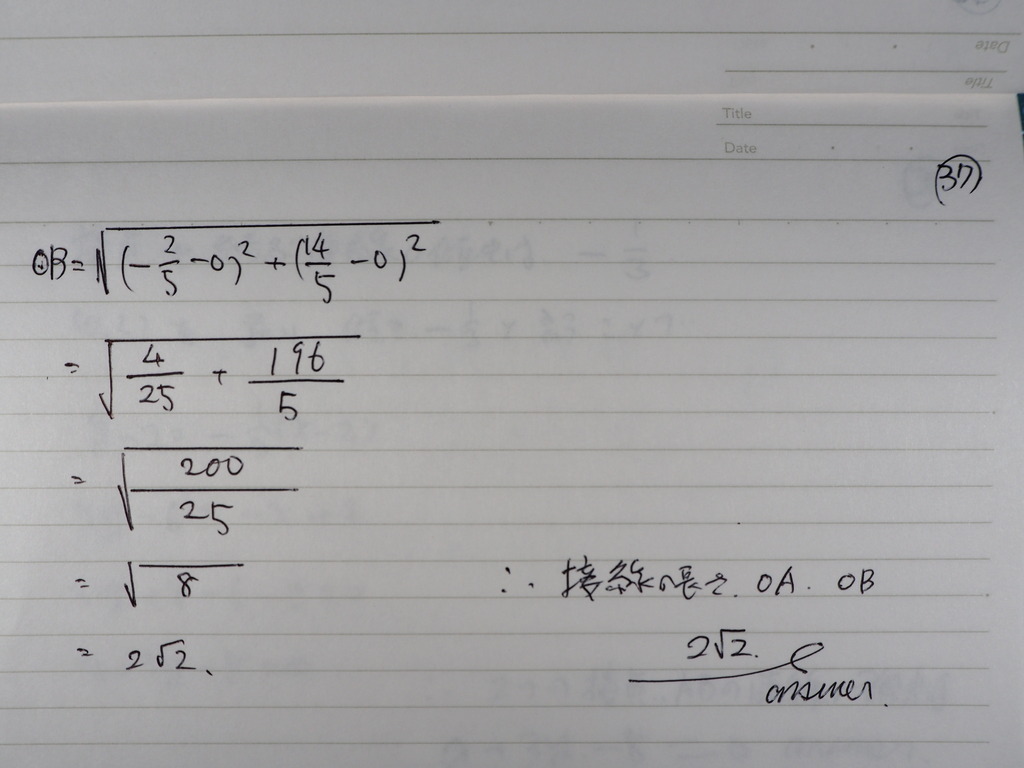 Date
Title
Title
Date
(37)
OB = √((-2/5 - 0)² + (14/5 - 0)²)
= √(4/25 + 196/5)
= √(200/25)
= √8
= 2√2.
∴ 接線の長さ OA. OB
2√2.
answer.